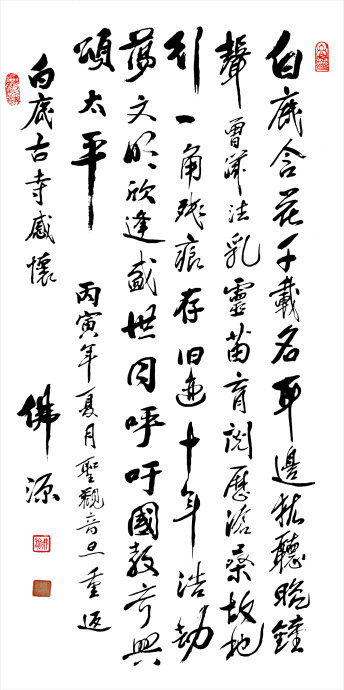 白鹿含花千載名耳邊猶聽晚鐘
聲曾蒙法乳靈苗育閱歷滄桑故地
行一角殘痕存旧迹十年浩劫
蕩文明欣逢盛世同呼吁國教齐興
頌太平 丙寅年夏月聖觀音旦重返
白鹿古寺感懷 佛源